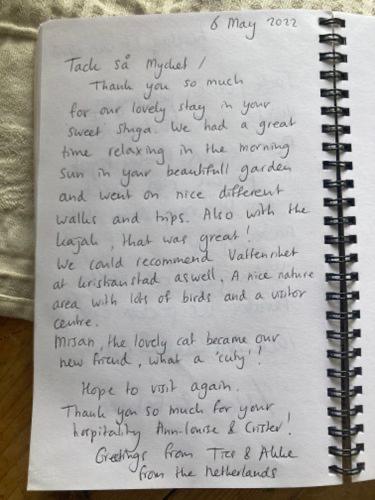 6 May 2022
Tack så Mycket /
Thank you so much
for our lovely stay in your
sweet Stuga. We had a great
time relaxing in the morning
sun in your beautifull garden
and went on nice different
walks and trips. Also with the
kajak, that was great!
We could recommend Vattenriket
at kristianstad aswell. A nice nature
area with lots of birds and a visitor
centre.
Misan, the lovely cat became our
new friend, what a 'cuty'!
Hope to visit again.
Thank you so much for your
hospitality Ann-louise & Crister!
Greetings from & 
from the Netherlands